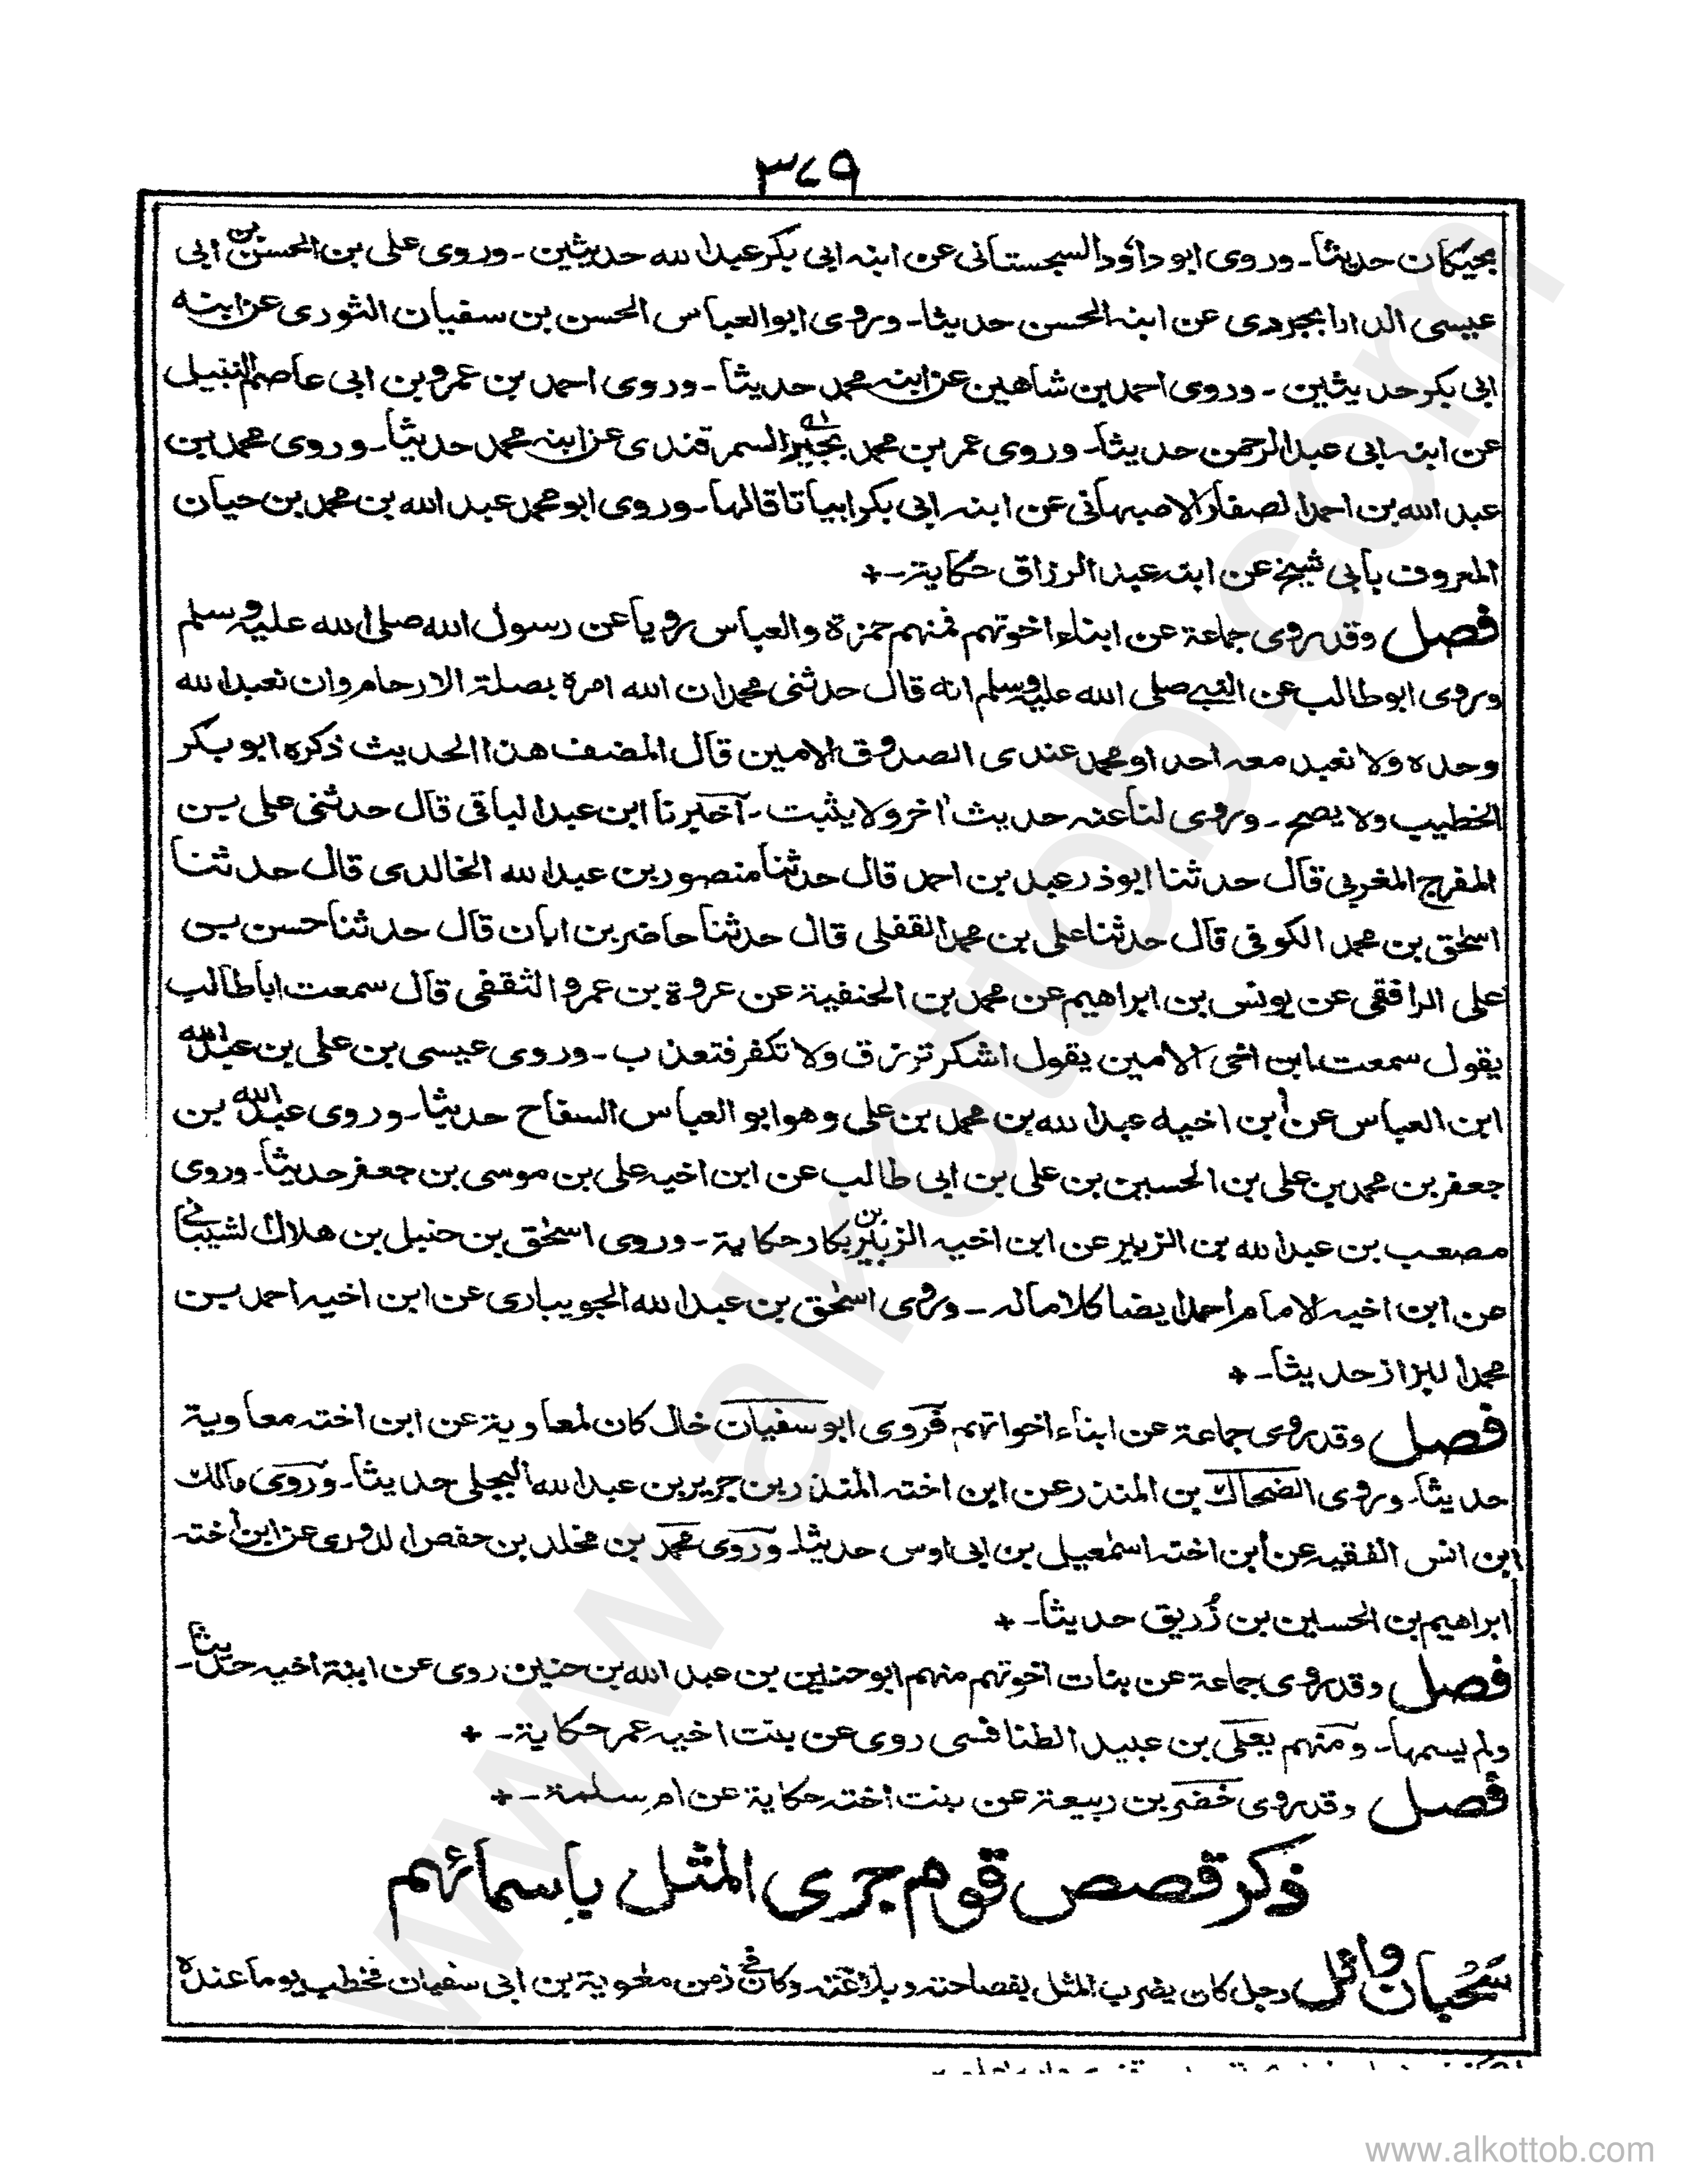 ٣٤٩
بحيكان حديثا ـ وروى ابو داؤد السجستانى عن ابنه ابى بكر عبد الله حديثين ـ وروى على بن الحسن بن ابى
عيسى الدارابجردى عن ابنه الحسن حديثا ـ وروى ابو العباس الحسن بن سفيان الثورى عن ابنه
ابى بكر حديثين ـ وروى احمد بن شاهين عن ابنه محمد حديثا ـ وروى احمد بن عمرو بن ابى عاصم النبيل
عن ابنه ابى عبد الرحمن حديثا ـ وروى عمر بن محمد بجير السمرقندى عن ابنه محمد حديثا ـ وروى محمد بن
عبد الله بن احمد الصفار الاصبهانى عن ابنه ابى بكر ابياتا قالها ـ وروى ابو محمد عبد الله بن محمد بن حيان
المعروف بابى شيخ عن ابنه عبد الرزاق حكاية ـ +
فصل وقد روى جماعة عن ابناء اخوتهم فمنهم حمزة والعباس رويا عن رسول الله صلى الله عليه وسلم
وروى ابو طالب عن النبى صلى الله عليه وسلم انه قال حدثنى محمد ان الله امره بصلة الارحام وان نعبد الله
وحده ولا نعبد معه احدا ومحمد عندى الصدوق الامين قال المصنف هذا الحديث ذكره ابو بكر
الخطيب ولا يصح ـ وروى لنا عنه حديث آخر ولا يثبت ـ اخبرنا ابن عبد الباقى قال حدثنى على بن
المفرج المغربى قال حدثنا ابوذر عبد بن احمد قال حدثنا منصور بن عبد الله الخالدى قال حدثنا
اسحٰق بن محمد الكوفى قال حدثنا على بن محمد القفلى قال حدثنا حاضر بن ابان قال حدثنا حسن بن
على الرافقى عن يونس بن ابراهيم عن محمد بن الحنفية عن عروة بن عمرو الثقفى قال سمعت ابا طالب
يقول سمعت ابن اخى الامين يقول اشكر ترزق ولا تكفر فتعذب ـ وروى عيسى بن على بن عبد الله
ابن العباس عن ابن اخيه عبد الله بن محمد بن على وهو ابو العباس السفاح حديثا ـ وروى عبد الله بن
جعفر بن محمد بن على بن الحسين بن على بن ابى طالب عن ابن اخيه على بن موسى بن جعفر حديثا ـ وروى
مصعب بن عبد الله بن الزبير عن ابن اخيه الزبير بن بكار حكاية ـ وروى اسحٰق بن حنبل بن هلال الشيبانى
عن ابن اخيه الامام احمد ايضا كلاما له ـ وروى اسحٰق بن عبد الله الجويبارى عن ابن اخيه احمد بن
محمد البزاز حديثا ـ +
فصل وقد روى جماعة عن ابناء اخواتهم فروى ابو سفيان خال كان لمعاوية عن ابن اخته معاوية
حديثا ـ وروى الضحاك بن المنذر عن ابن اخته المنذر بن جرير بن عبد الله البجلى حديثا ـ وروى مالك
ابن انس الفقيه عن ابن اخته اسمٰعيل بن ابى اوس حديثا ـ وروى محمد بن مخلد بن حفص الدورى عن ابن اخته
ابراهيم بن الحسين بن زُريق حديثا ـ +
فصل وقد روى جماعة عن بنات اخوتهم منهم ابو حنين بن عبد الله بن حنين روى عن ابنة اخيه حديثا ـ
ولم يسمها ـ ومنهم يعلى بن عبيد الطنافسى روى عن بنت اخيه عمر حكاية ـ +
فصل وقد روى خضر بن ربيعة عن بنت اخته حكاية عن ام سلمة ـ +
ذكر قصص قوم جرى المثل باسمائهم
سَحُبان وائل رجل كان يضرب المثل بفصاحته وبلاغته وكان فى زمن معٰوية بن ابى سفيان فخطب يوما عنده
www.alkottob.com
www.alkottob.com